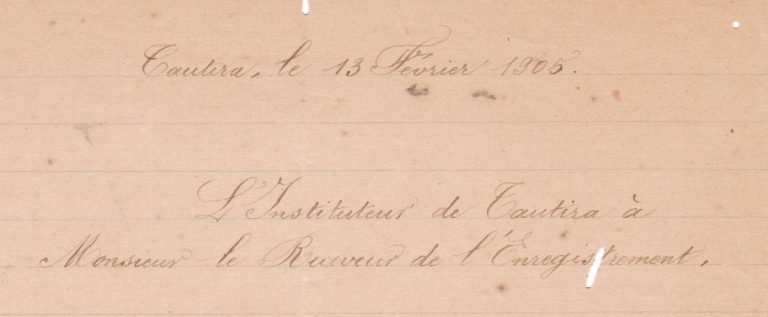 Tautira, le 13 Février 1905.
L'Instituteur de Tautira à
Monsieur le Receveur de l'Enregistrement,